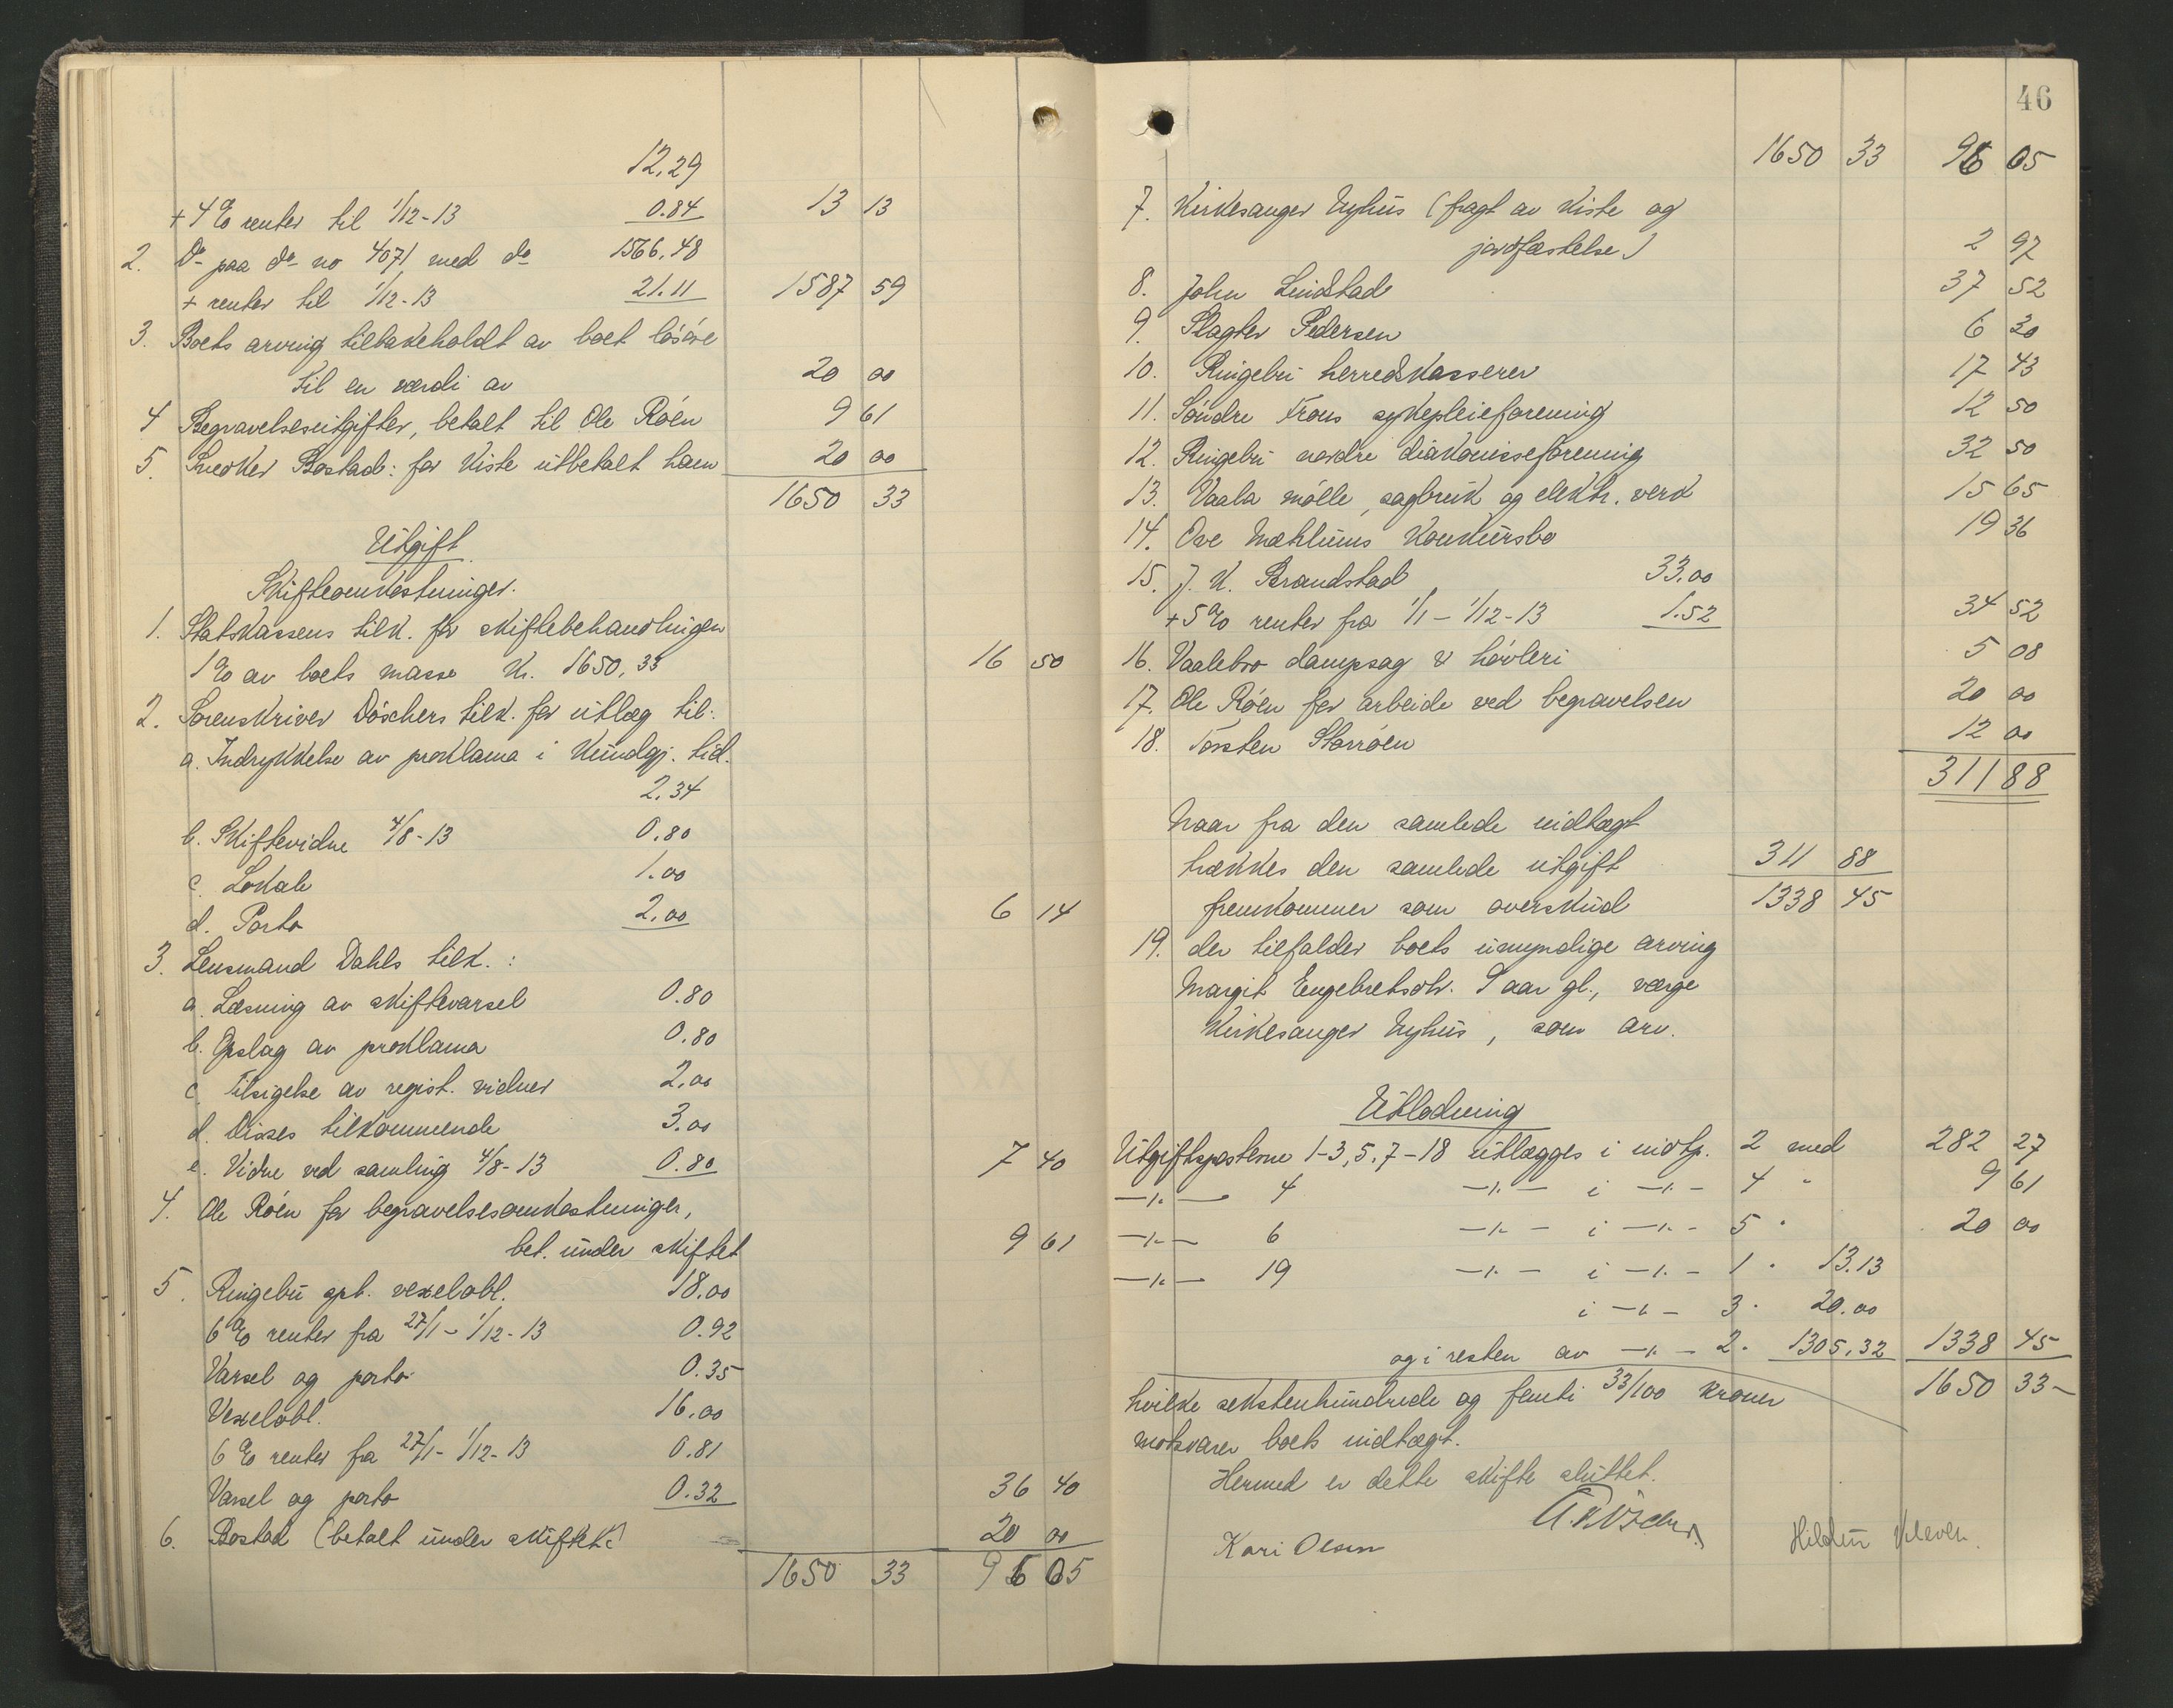 12,29
+ 4 % renter til 1/12-13 0.84 13 13
2. Do paa do no 4071 med do 1566,48
+ renter til 1/12-13 21.11 1587 59
3. Boets arving tilbakeholdt av boet løsøre
til en værdi av 20 00
4 Begravelsesutgifter, betalt til Ole Røén 9 61
5. Snedker Bostad: for kiste utbetalt ham 20 00
1650 33
Utgift
Skifteomkostninger.
1. Statskassens tilk. for skiftebehandlingen
1 % av boets masse Kr. 1650,33 16 50
2. Sorenskriver Döschers tilk. for utlæg til:
a. Indrykkelse av proklama i Kundgj. tid.
2.34
b. Skiftevidne 4/8-13 0.80
c. Lokale 1.00
d. Porto 2.00 6 14
3. Lensmand Dahls tilk. :
a. Læsning av skiftevarsel 0.80
b. Opslag av proklama 0.80
c. Tilsigelse av regist. vidner 2.00
d. Disses tilkommende 3.00
e. Vidne ved samling 4/8-13 0.80 7 40
4. Ole Røén for begravelsesomkostninger,
bet. under skiftet 9 61
5. Ringebu spb. vexelobl. 18.00
6 % renter fra 27/1 - 1/12-13 0.92
Varsel og porto 0.35
Vexelobl. 16.00
6 % renter fra 27/1 - 1/12-13 0.81
Varsel og porto 0.32 36 40
6. Bostad (betalt under skiftet) 20 00
1650 33 96 05
46
1650 33 96 05
7. Kirkesanger Nyhus (fragt av kiste og
jordfæstelse) 2 97
8. John Lindstad 37 52
9. Slagter Pedersen 6 30
10. Ringebu herredskasserer 17 43
11. Søndre Frons sykepleieforening 12 50
12. Ringebu nordre diakonisseforening 32 50
13. Vaala mølle, sagbruk og elektr. verk 15 65
14. Ove Mæhlums konkursbo 19 36
15. J. K. Brandstad 33.00
+ 5 % renter fra 1/1 - 1/12-13 1.52 34 52
16. Vaalebro dampsag & høvleri 5 08
17. Ole Røén for arbeide ved begravelsen 20 00
18. Torsten Storrøen 12 00
311 88
Naar fra den samlede indtægt
trækkes den samlede utgift 311 88
fremkommer som overskud 1338 45
19. der tilfalder boets umyndige arving
Margit Engebretsdtr. 9 aar gl., værge
Kirkesanger Nyhus, som arv.
Utlodning
Utgiftsposterne 1-3, 5, 7-18 utlægges i indtp. 2 med 282 27
-"- 4 -"- i -"- 4 " 9 61
-"- 6 -"- i -"- 5 " 20 00
-"- 19 -"- i -"- 1 " 13.13
i -"- 3 " 20.00
og i resten av -"- 2 " 1305,32 1338 45
hvilke sekstenhundrede og femti 33/100 kroner 1650 33
motsvarer boets indtægt.
Hermed er dette skifte sluttet.
Kari Olsen